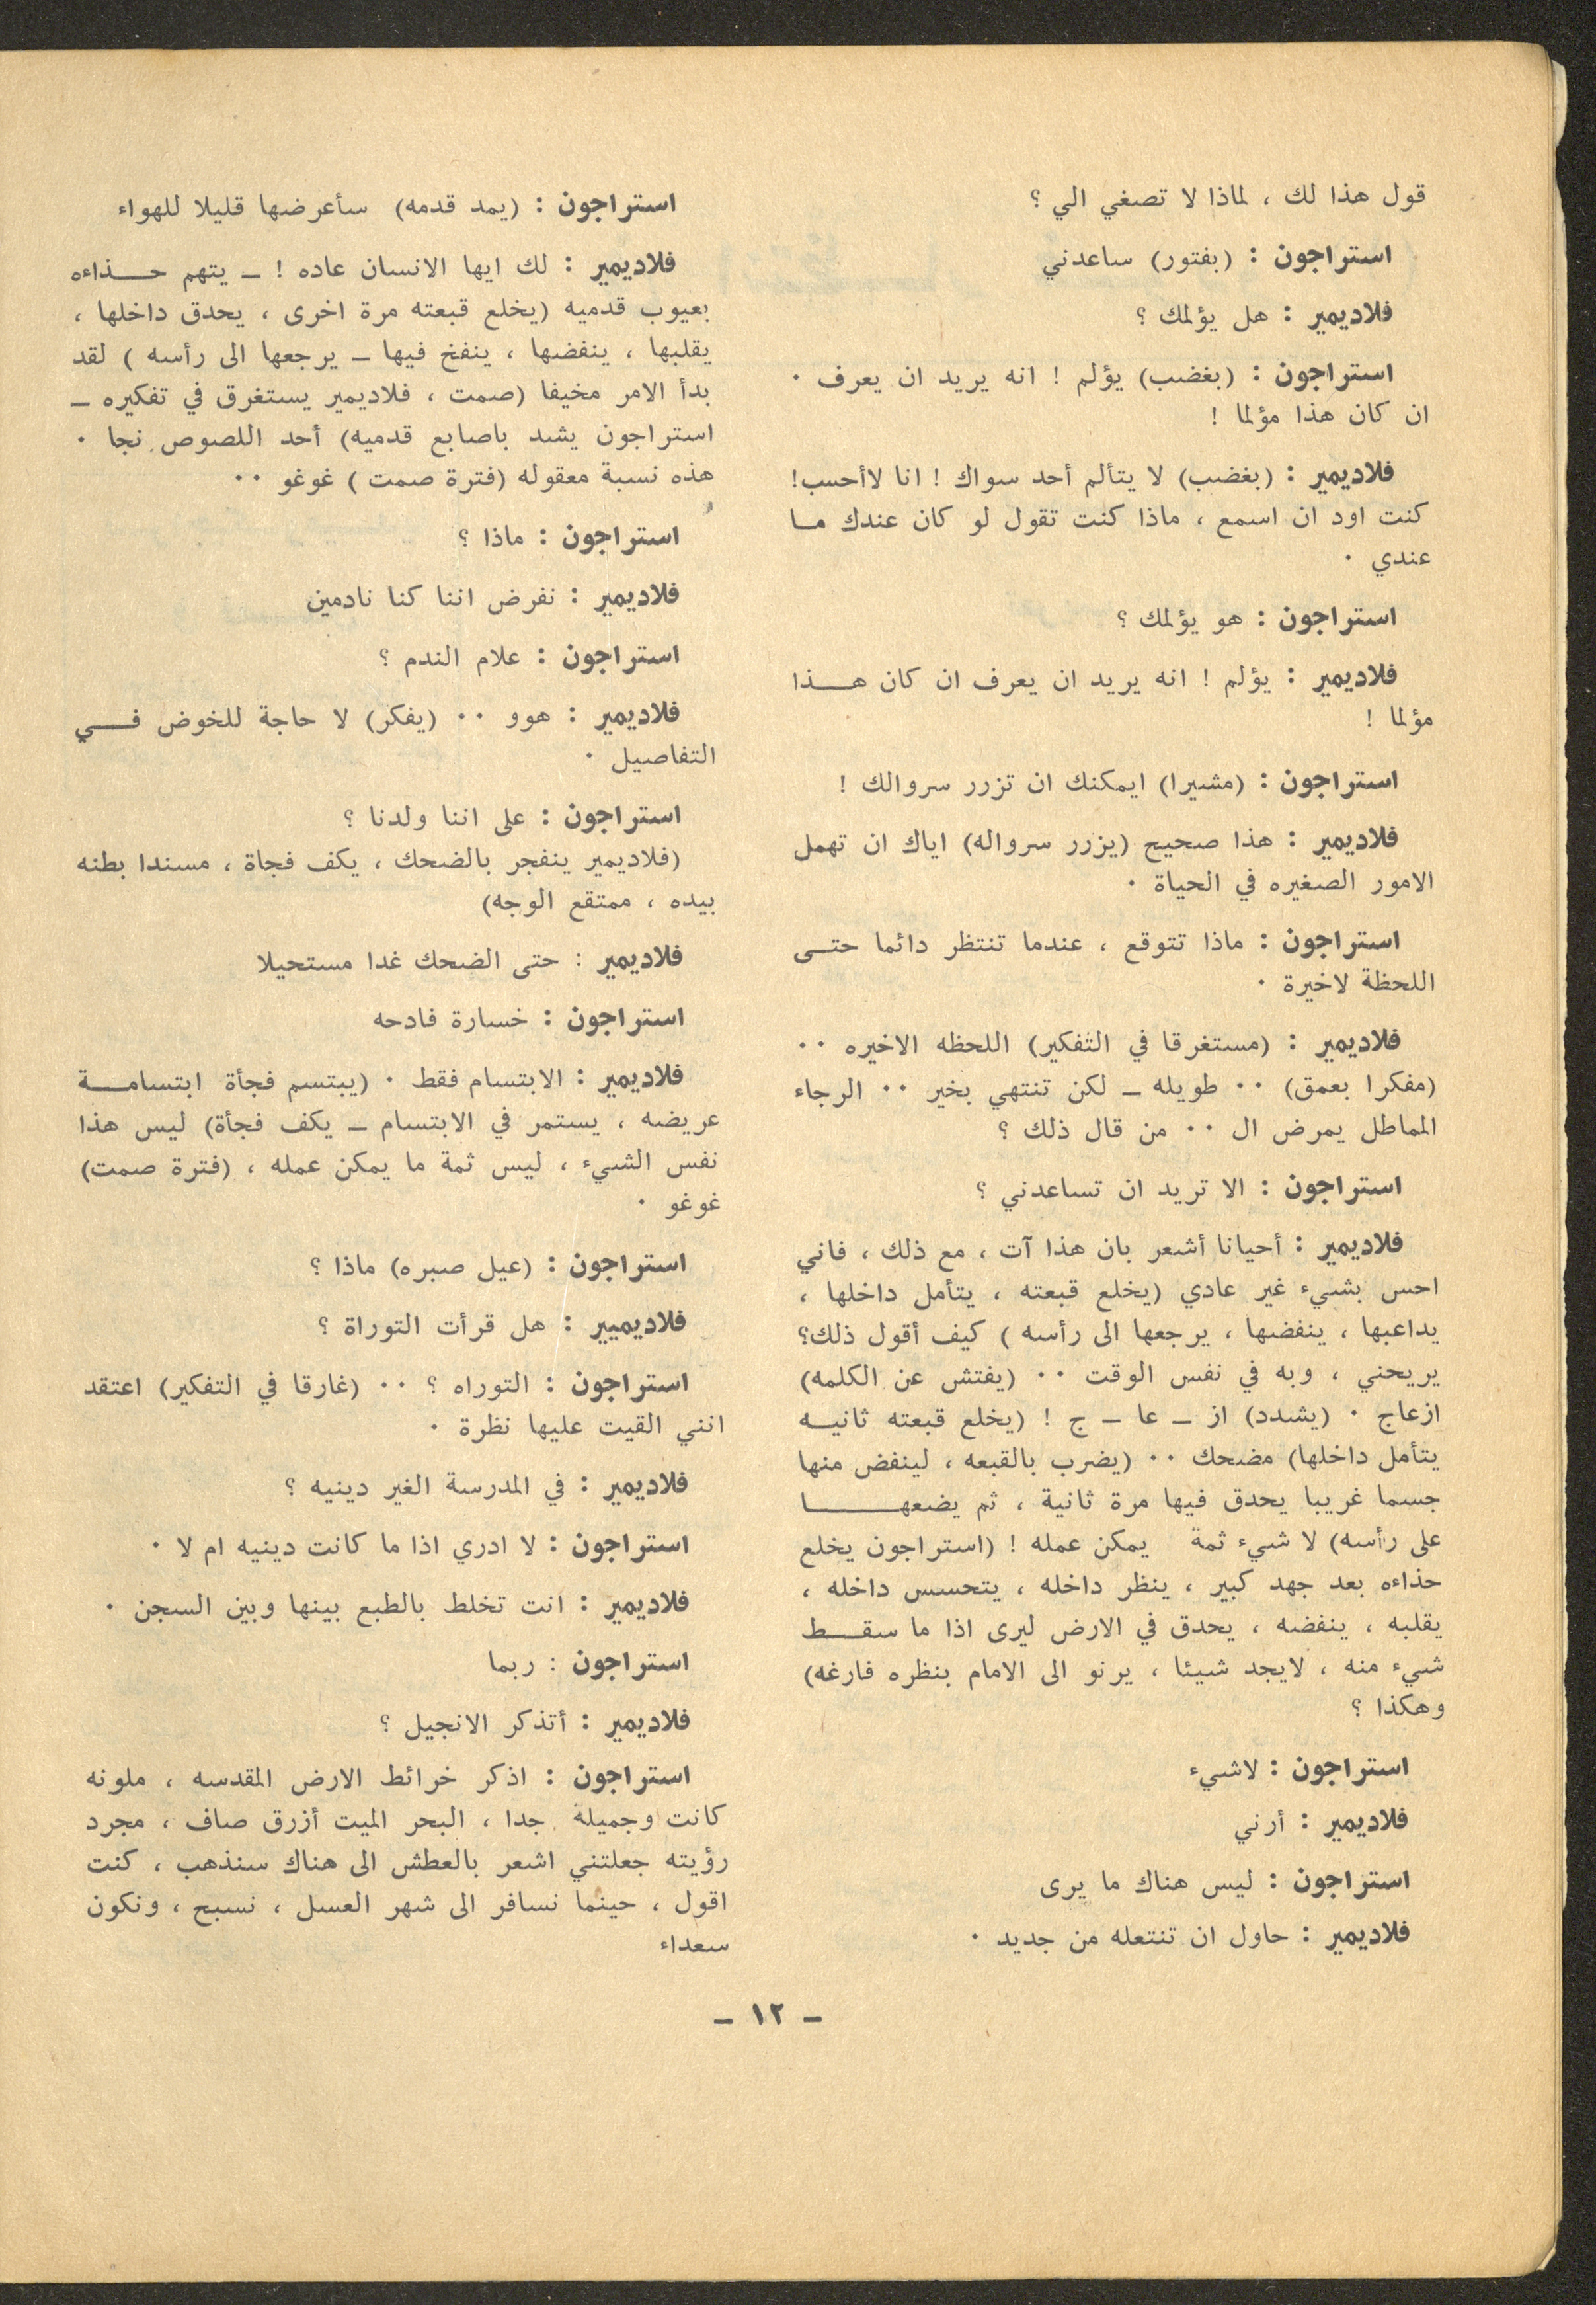 قول هذا لك ، لماذا لا تصغي الي ؟
استراجون : (بفتور) ساعدني
فلاديمير : هل يؤلمك ؟
استراجون : (بغضب) يؤلم ! انه يريد ان يعرف ٠
ان كان هذا مؤلما !
فلاديمير : (بغضب) لا يتألم أحد سواك ! انا لاأحسب!
كنت اود ان اسمع ، ماذا كنت تقول لو كان عندك ما
عندي ٠
استراجون : هو يؤلمك ؟
فلاديمير : يؤلم ! انه يريد ان يعرف ان كان هــذا
مؤلما !
استراجون : (مشيرا) ايمكنك ان تزرر سروالك !
فلاديمير : هذا صحيح (يزرر سرواله) اياك ان تهمل
الامور الصغيره في الحياة ٠
استراجون : ماذا تتوقع ، عندما تنتظر دائما حتــى
اللحظة لاخيرة ٠
فلاديمير : (مستغرقا في التفكير) اللحظه الاخيره ٠٠
(مفكرا بعمق) ٠٠ طويله ــ لكن تنتهي بخير ٠٠ الرجاء
المماطل يمرض ال ٠٠ من قال ذلك ؟
استراجون : الا تريد ان تساعدني ؟
فلاديمير : أحيانا أشعر بان هذا آت ، مع ذلك ، فاني
احس بشيء غير عادي (يخلع قبعته ، يتأمل داخلها ،
يداعبها ، ينفضها ، يرجعها الى رأسه ) كيف أقول ذلك؟
يريحني ، وبه في نفس الوقت ٠٠ (يفتش عن الكلمه)
ازعاج ٠ (يشدد) از ــ عا ــ ج ! (يخلع قبعته ثانيــه
يتأمل داخلها) مضحك ٠٠ (يضرب بالقبعه ، لينفض منها
جسما غريبا يحدق فيها مرة ثانية ، ثم يضعهــــا
على رأسه) لا شيء ثمة يمكن عمله ! (استراجون يخلع
حذاءه بعد جهد كبير ، ينظر داخله ، يتحسس داخله ،
يقلبه ، ينفضه ، يحدق في الارض ليرى اذا ما سقــط
شيء منه ، لايجد شيئا ، يرنو الى الامام بنظره فارغه)
وهكذا ؟
استراجون : لاشيء
فلاديمير : أرني
استراجون : ليس هناك ما يرى
فلاديمير : حاول ان تنتعله من جديد ٠
استراجون : (يمد قدمه) سأعرضها قليلا للهواء
فلاديمير : لك ايها الانسان عاده ! ــ يتهم حــذاءه
بعيوب قدميه (يخلع قبعته مرة اخرى ، يحدق داخلها ،
يقلبها ، ينفضها ، ينفخ فيها ــ يرجعها الى رأسه ) لقد
بدأ الامر مخيفا (صمت ، فلاديمير يستغرق في تفكيره ــ
استراجون يشد باصابع قدميه) أحد اللصوص نجا ٠
هذه نسبة معقوله (فترة صمت ) غوغو ٠٠
استراجون : ماذا ؟
فلاديمير : نفرض اننا كنا نادمين
استراجون : علام الندم ؟
فلاديمير : هوو ٠٠ (يفكر) لا حاجة للخوض فــي
التفاصيل ٠
استراجون : على اننا ولدنا ؟
(فلاديمير ينفجر بالضحك ، يكف فجاة ، مسندا بطنه
بيده ، ممتقع الوجه)
فلاديمير : حتى الضحك غدا مستحيلا
استراجون : خسارة فادحه
فلاديمير : الابتسام فقط ٠ (يبتسم فجأة ابتسامــة
عريضه ، يستمر في الابتسام ــ يكف فجأة) ليس هذا
نفس الشيء ، ليس ثمة ما يمكن عمله ، (فترة صمت)
غوغو ٠
استراجون : (عيل صبره) ماذا ؟
فلاديميير : هل قرأت التوراة ؟
استراجون : التوراه ؟ ٠٠ (غارقا في التفكير) اعتقد
انني القيت عليها نظرة ٠
فلاديمير : في المدرسة الغير دينيه ؟
استراجون : لا ادري اذا ما كانت دينيه ام لا ٠
فلاديمير : انت تخلط بالطبع بينها وبين السجن ٠
استراجون : ربما
فلاديمير : أتذكر الانجيل ؟
استراجون : اذكر خرائط الارض المقدسه ، ملونه
كانت وجميلة جدا ، البحر الميت أزرق صاف ، مجرد
رؤيته جعلتني اشعر بالعطش الى هناك سنذهب ، كنت
اقول ، حينما نسافر الى شهر العسل ، نسبح ، ونكون
سعداء
ــ ١٢ ــ